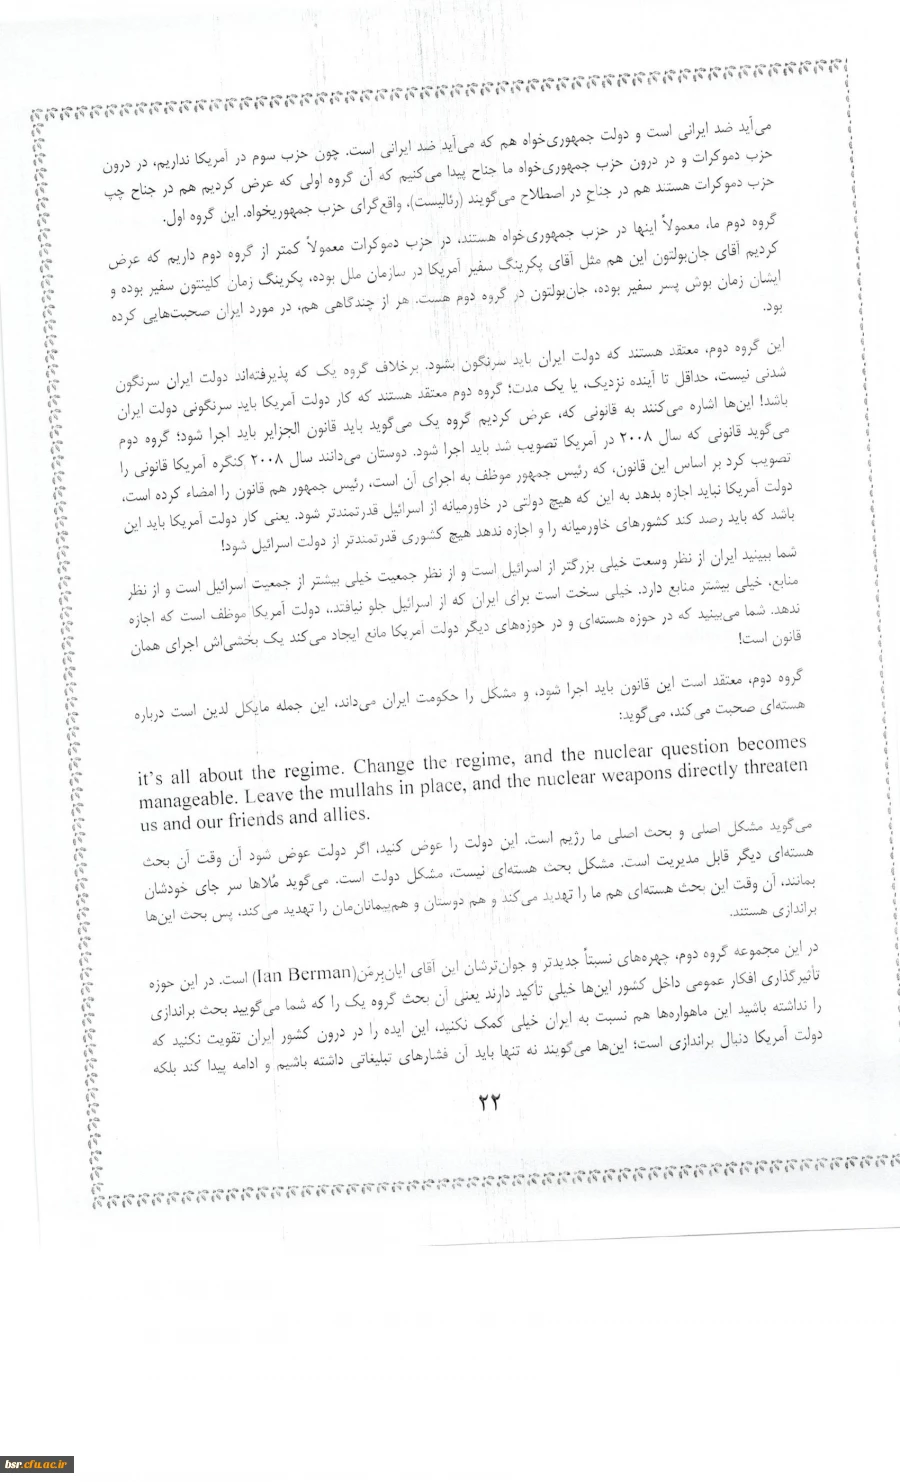 می‌آید ضد ایرانی است و دولت جمهوری‌خواه هم که می‌آید ضد ایرانی است. چون حزب سوم در آمریکا نداریم، در درون
حزب دموکرات و در درون حزب جمهوری‌خواه ما جناح پیدا می‌کنیم که آن گروه اولی که عرض کردیم هم در جناح چپ
حزب دموکرات هستند هم در جناح در اصطلاح می‌گویند (رئالیست)، واقع‌گرای حزب جمهوریخواه. این گروه اول.
گروه دوم ما، معمولاً اینها در حزب جمهوری‌خواه هستند، در حزب دموکرات معمولاً کمتر از گروه دوم داریم که عرض
کردیم آقای جان‌بولتون این هم مثل آقای پکرینگ سفیر آمریکا در سازمان ملل بوده، پکرینگ زمان کلینتون سفیر بوده و
ایشان زمان بوش پسر سفیر بوده، جان‌بولتون در گروه دوم هست. هر از چندگاهی هم، در مورد ایران صحبت‌هایی کرده
بود.
این گروه دوم، معتقد هستند که دولت ایران باید سرنگون بشود. برخلاف گروه یک که پذیرفته‌اند دولت ایران سرنگون
شدنی نیست، حداقل تا آینده نزدیک، یا یک مدت؛ گروه دوم معتقد هستند که کار دولت آمریکا باید سرنگونی دولت ایران
باشد! این‌ها اشاره می‌کنند به قانونی که، عرض کردیم گروه یک می‌گوید باید قانون الجزایر باید اجرا شود؛ گروه دوم
می‌گوید قانونی که سال ۲۰۰۸ در آمریکا تصویب شد باید اجرا شود. دوستان می‌دانند سال ۲۰۰۸ کنگره آمریکا قانونی را
تصویب کرد بر اساس این قانون، که رئیس جمهور موظف به اجرای آن است، رئیس جمهور هم قانون را امضاء کرده است،
دولت آمریکا نباید اجازه بدهد به این که هیچ دولتی در خاورمیانه از اسرائیل قدرتمندتر شود. یعنی کار دولت آمریکا باید این
باشد که باید رصد کند کشورهای خاورمیانه را و اجازه ندهد هیچ کشوری قدرتمندتر از دولت اسرائیل شود!
شما ببینید ایران از نظر وسعت خیلی بزرگتر از اسرائیل است و از نظر جمعیت خیلی بیشتر از جمعیت اسرائیل است و از نظر
منابع، خیلی بیشتر منابع دارد. خیلی سخت است برای ایران که از اسرائیل جلو نیافتد.، دولت آمریکا موظف است که اجازه
ندهد. شما می‌بینید که در حوزه هسته‌ای و در حوزه‌های دیگر دولت آمریکا مانع ایجاد می‌کند یک بخشی‌اش اجرای همان
قانون است!
گروه دوم، معتقد است این قانون باید اجرا شود، و مشکل را حکومت ایران می‌داند، این جمله مایکل لدین است درباره
هسته‌ای صحبت می‌کند، می‌گوید:
it's all about the regime. Change the regime, and the nuclear question becomes
manageable. Leave the mullahs in place, and the nuclear weapons directly threaten
us and our friends and allies.
می‌گوید مشکل اصلی و بحث اصلی ما رژیم است. این دولت را عوض کنید، اگر دولت عوض شود آن وقت آن بحث
هسته‌ای دیگر قابل مدیریت است. مشکل بحث هسته‌ای نیست، مشکل دولت است. می‌گوید مُلاها سر جای خودشان
بمانند، آن وقت این بحث هسته‌ای هم ما را تهدید می‌کند و هم دوستان و هم‌پیمانان‌مان را تهدید می‌کند، پس بحث این‌ها
براندازی هستند.
در این مجموعه گروه دوم، چهره‌های نسبتاً جدیدتر و جوان‌ترشان این آقای ایان‌بِرمَن(Ian Berman) است. در این حوزه
تأثیرگذاری افکار عمومی داخل کشور این‌ها خیلی تأکید دارند یعنی آن بحث گروه یک را که شما می‌گویید بحث براندازی
را نداشته باشید این ماهواره‌ها هم نسبت به ایران خیلی کمک نکنید، این ایده را در درون کشور ایران تقویت نکنید که
دولت آمریکا دنبال براندازی است؛ این‌ها می‌گویند نه تنها باید آن فشارهای تبلیغاتی داشته باشیم و ادامه پیدا کند بلکه
۲۲
bsr.cfu.ac.ir